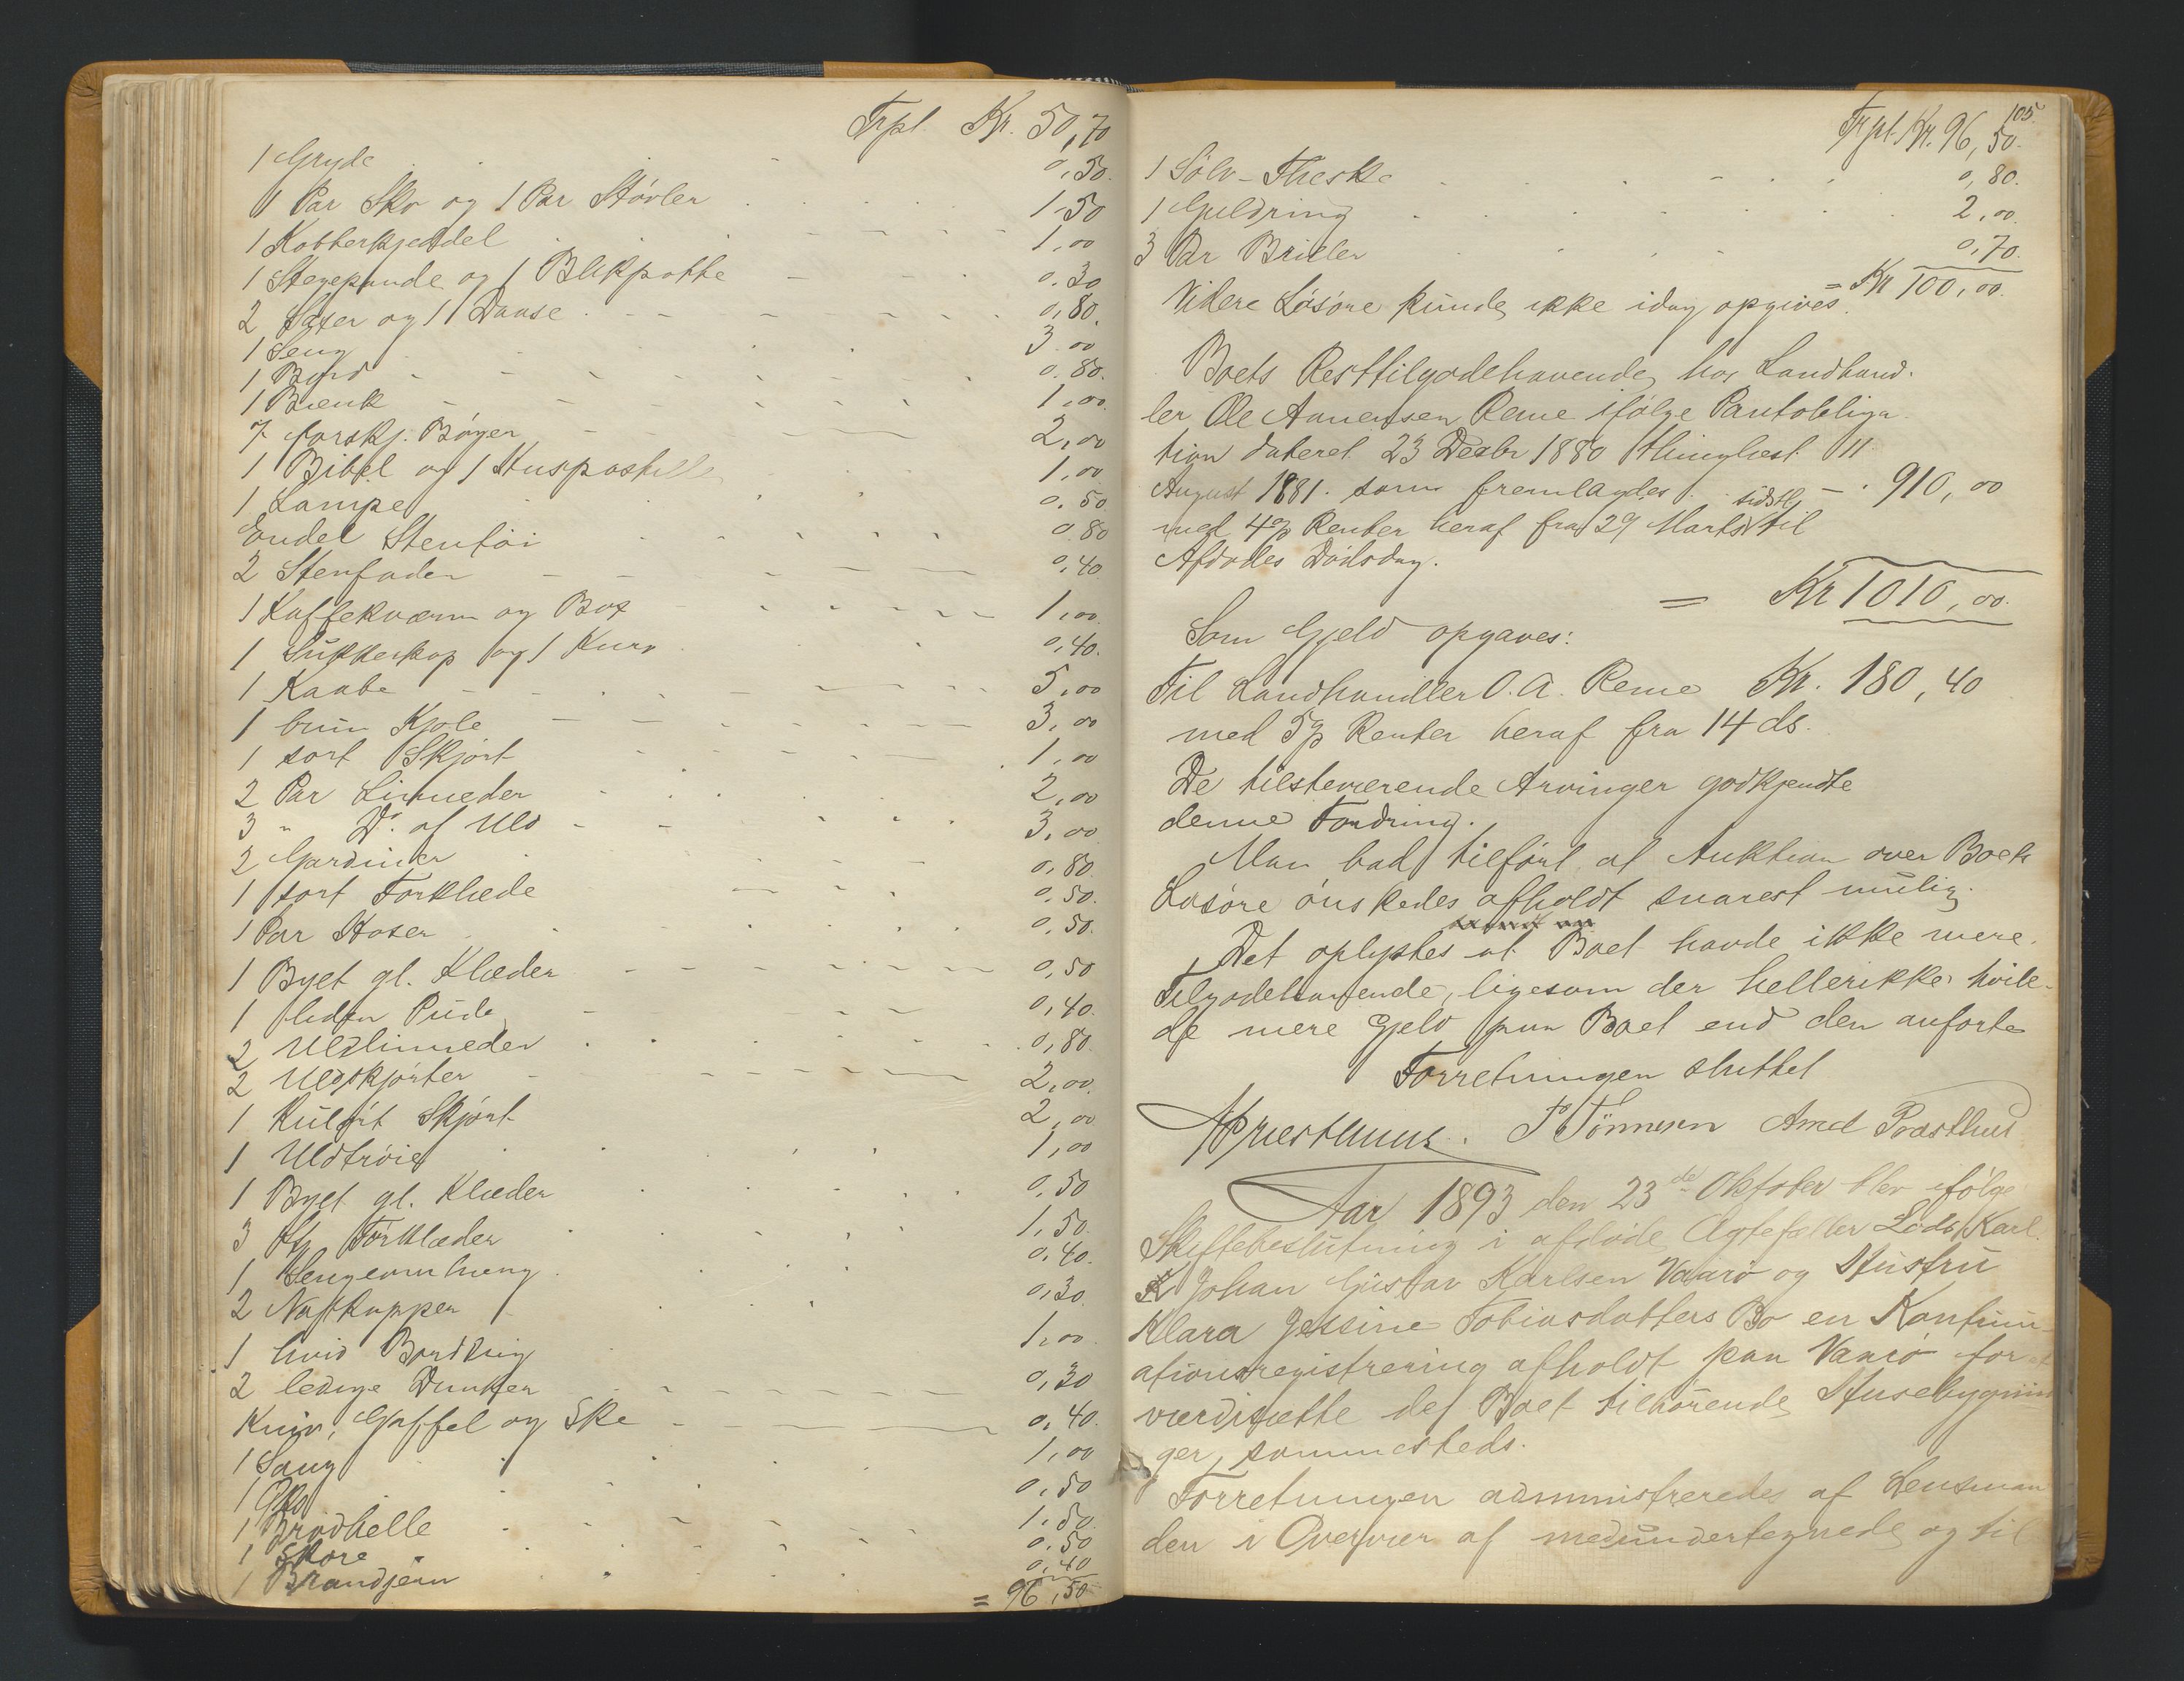 Trpt. Kr. 50,70
1 Gryde 0,50.
1 Par Sko og 1 Par Støvler 1,50
1 Kobberkjedel 1,00
1 Stegepande og 1 Blikpotte 0,30
2 Saxer og 1 Daase 0,80.
1 Seng 3,00
1 Bord 0,80.
1 Bænk 1,00.
7 forskj. Bøger 2,00
1 Bibel og 1 Huspostille 1,00
1 Lampe 0,50
Endel Stentøi 0,80
2 Stenfade 0,40
1 Kaffekværn og Box 1,00.
1 Sukkerkop og 1 Kurv 0,40.
1 Kaabe 5,00
1 brun Kjole 3,00
1 sort Skjørt 1,00
2 Par Linneder 2,00
3 " Do. af Uld 3,00
2 Gardiner 0,80.
1 sort Forklæde 0,50.
1 Par Hoser 0,50.
1 Byet gl. Klæder 0,50
1 liden Pude 0,40.
2 Uldlinneder 0,80.
2 Uldskjorter 2,00.
1 Kulørt Skjørt 2,00
1 Uldtrøie 1,00
1 Byet gl. Klæder 0,50
3 Stk Forklæder 1,50.
1 Sengeomhæng 0,40.
2 Natkapper 0,30
1 hvid Borddug 1,00
2 ledige Dunker 0,30
Kniv, Gaffel og Ske 0,40.
1 Saug 1,00
1 Øks 0,50
1 Brødhelle 1,50.
1 Skore 0,50
1 Brandjern 0,40
= 96,50
105.
Trpt. Kr. 96,50.
1 Sølv-Theske 0,80.
1 Guldring 2,00.
3 Par Briller 0,70.
= Kr 100,00.
Videre Løsøre kunde ikke idag opgives.
Boets Resttilgodehavende hos Landhand-
ler Ole Aanensen Reme ifølge Pantobliga
tion dateret 23 Decbr 1880 thinglæst 11
August 1881. som fremlagdes - . 910,00
med 4% Renter heraf fra 29 Marts sidstl. til
Afdødes Dødsdag.
= Kr 1010,00.
Som Gjeld opgaves:
Til Landhandler O. A. Reme Kr. 180,40
med 5% Renter heraf fra 14 ds.
De tilstedeværende Arvinger godkjendte
denne Fordring.
Man bad tilført at Auktion over Boets
Løsøre ønskedes afholdt snarest mulig.
Det oplystes at Boet havde ikke mere
Tilgodehavende, ligesom der heller ikke hvile-
de mere Gjeld paa Boet end den anførte
Forretningen sluttet
Præsthuus. T Tönnesen Amd Præsthus
Aar 1893 den 23de Oktober blev ifølge
Skiftebeslutning i afdøde Ægtefæller Lods Karl
Johan Gustav Karlsen Vaarø og Hustru
Klara Jessine Tobiasdatters Bo en Kontinu-
ationsregistrering afholdt paa Vaarø for at
værdisætte de Boet tilhørende Husebygnin
ger, sammesteds.
Forretningen administreredes af Lensman
den i Overvær af medundertegnede og til